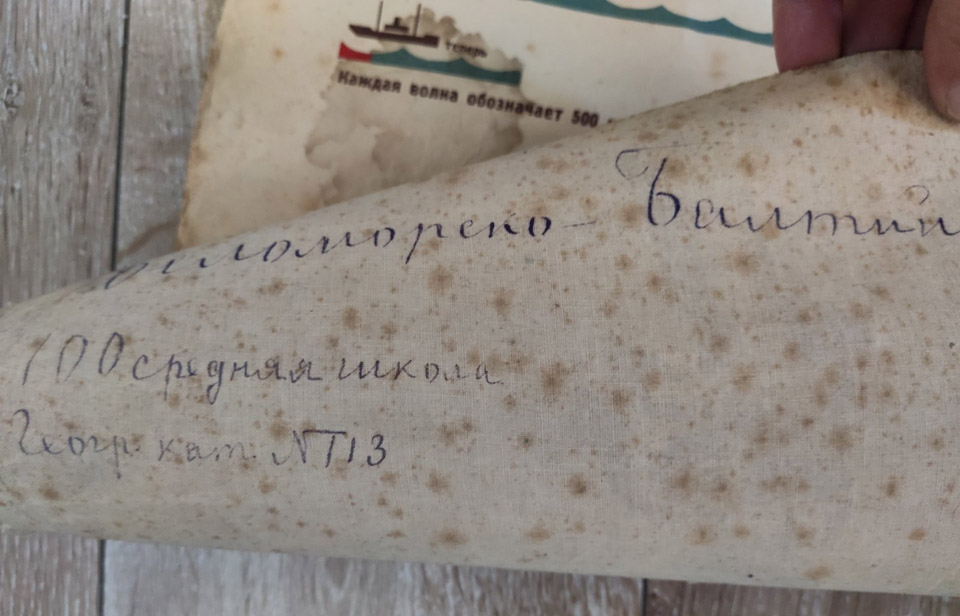 теперь
Каждая волна обозначает 500
Беломорско-Балтий
100 средняя школа
Геогр. каб. NT13